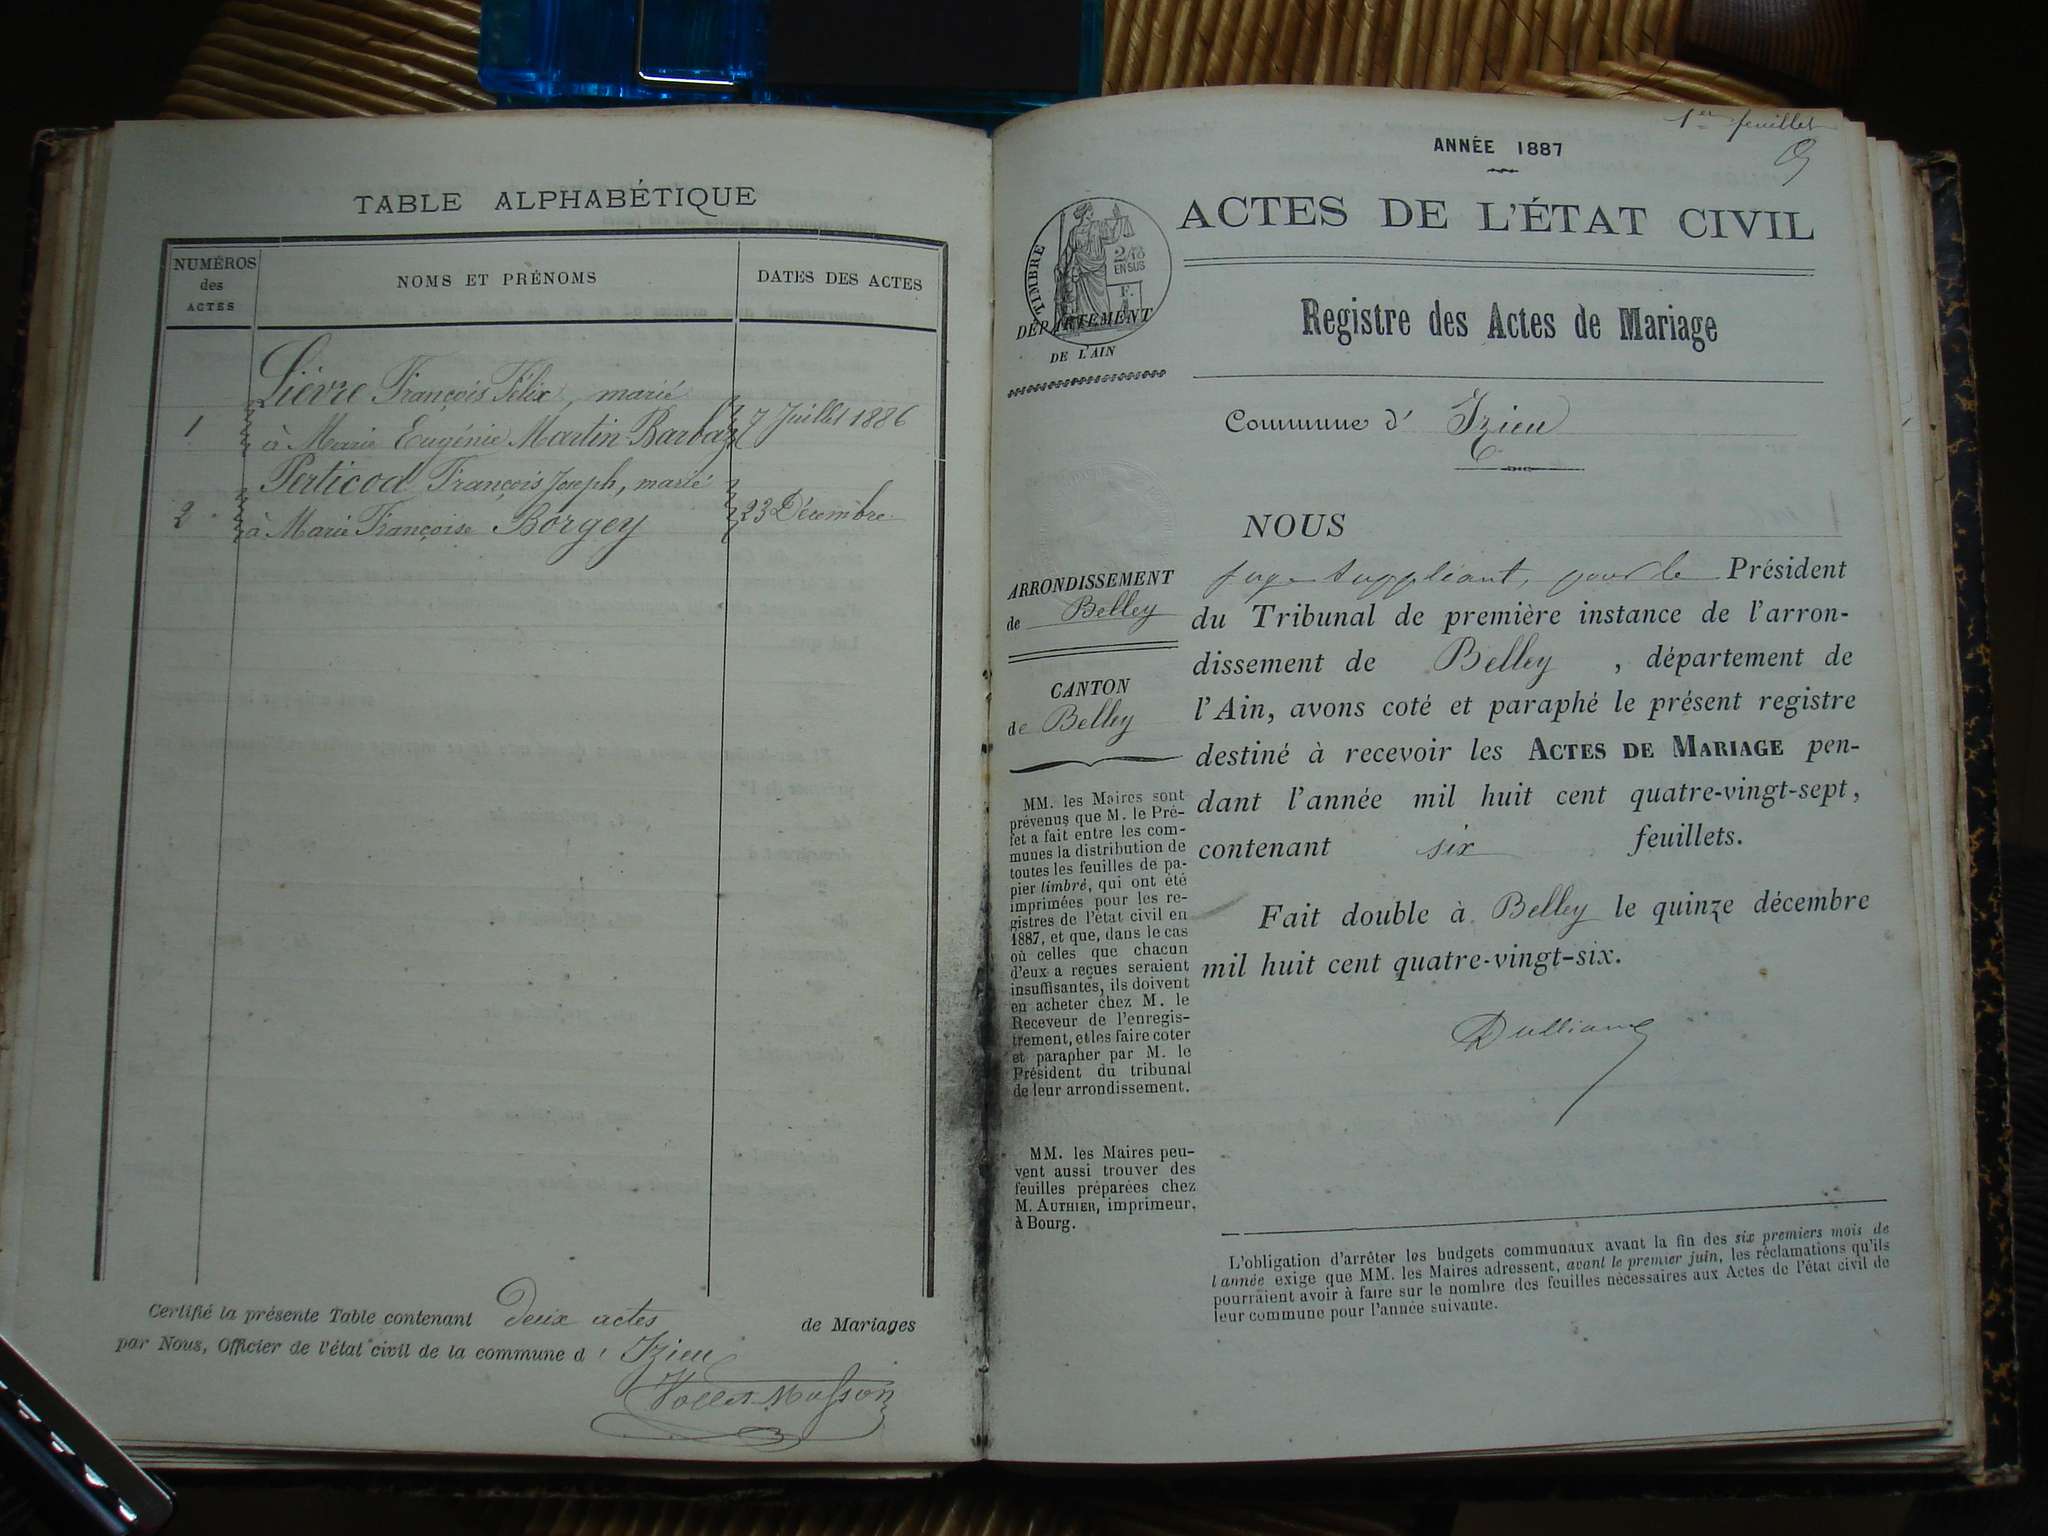 TABLE ALPHABÉTIQUE
NUMÉROS des ACTES
NOMS ET PRÉNOMS
DATES DES ACTES
Lièvre François Félix, marié
1 à Marie Eugénie Martin-Barbaz 7 Juillet 1886
Perticod François Joseph, marié
2 à Marie Françoise Borgey 23 Décembre
Certifié la présente Table contenant deux actes de Mariages
par Nous, Officier de l'état civil de la commune d' Izieu
1er feuillet
ANNÉE 1887
ACTES DE L'ÉTAT CIVIL
TIMBRE
2/10
EN SUS
F.
DÉPARTEMENT
DE L'AIN
Registre des Actes de Mariage
Commune d' Izieu
ARRONDISSEMENT
de Belley
CANTON
de Belley
MM. les Maires sont
prévenus que M. le Pré-
fet a fait entre les com-
munes la distribution de
toutes les feuilles de pa-
pier timbré, qui ont été
imprimées pour les re-
gistres de l'état civil en
1887, et que, dans le cas
où celles que chacun
d'eux a reçues seraient
insuffisantes, ils doivent
en acheter chez M. le
Receveur de l'enregis-
trement, et les faire coter
et parapher par M. le
Président du tribunal
de leur arrondissement.
MM. les Maires peu-
vent aussi trouver des
feuilles préparées chez
M. AUTHIER, imprimeur,
à Bourg.
NOUS
juge suppléant, pour le Président
du Tribunal de première instance de l'arron-
dissement de Belley, département de
l'Ain, avons coté et paraphé le présent registre
destiné à recevoir les ACTES DE MARIAGE pen-
dant l'année mil huit cent quatre-vingt-sept,
contenant six feuillets.
Fait double à Belley le quinze décembre
mil huit cent quatre-vingt-six.
L'obligation d'arrêter les budgets communaux avant la fin des six premiers mois de
l'année exige que MM. les Maires adressent, avant le premier juin, les réclamations qu'ils
pourraient avoir à faire sur le nombre des feuilles nécessaires aux Actes de l'état civil de
leur commune pour l'année suivante.